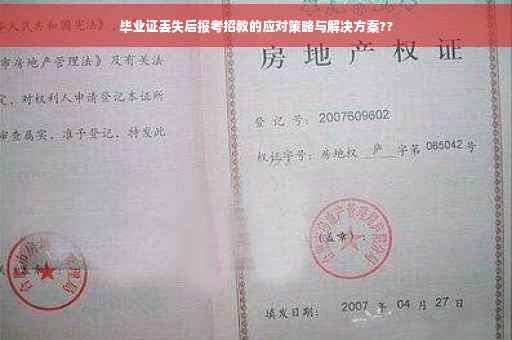 毕业证丢失后报考招教的应对策略与解决方案??
人民共和国宪法》、
市房地产管理法》及有关法
定,对权利人申请登记本证所
审查属实,准予登记,特发此
房地产权证
登记号:2007609602
权证字号:房地权 庐 字第 065042 号
(盖章):
填发日期: 2007 年 04 月 27 日